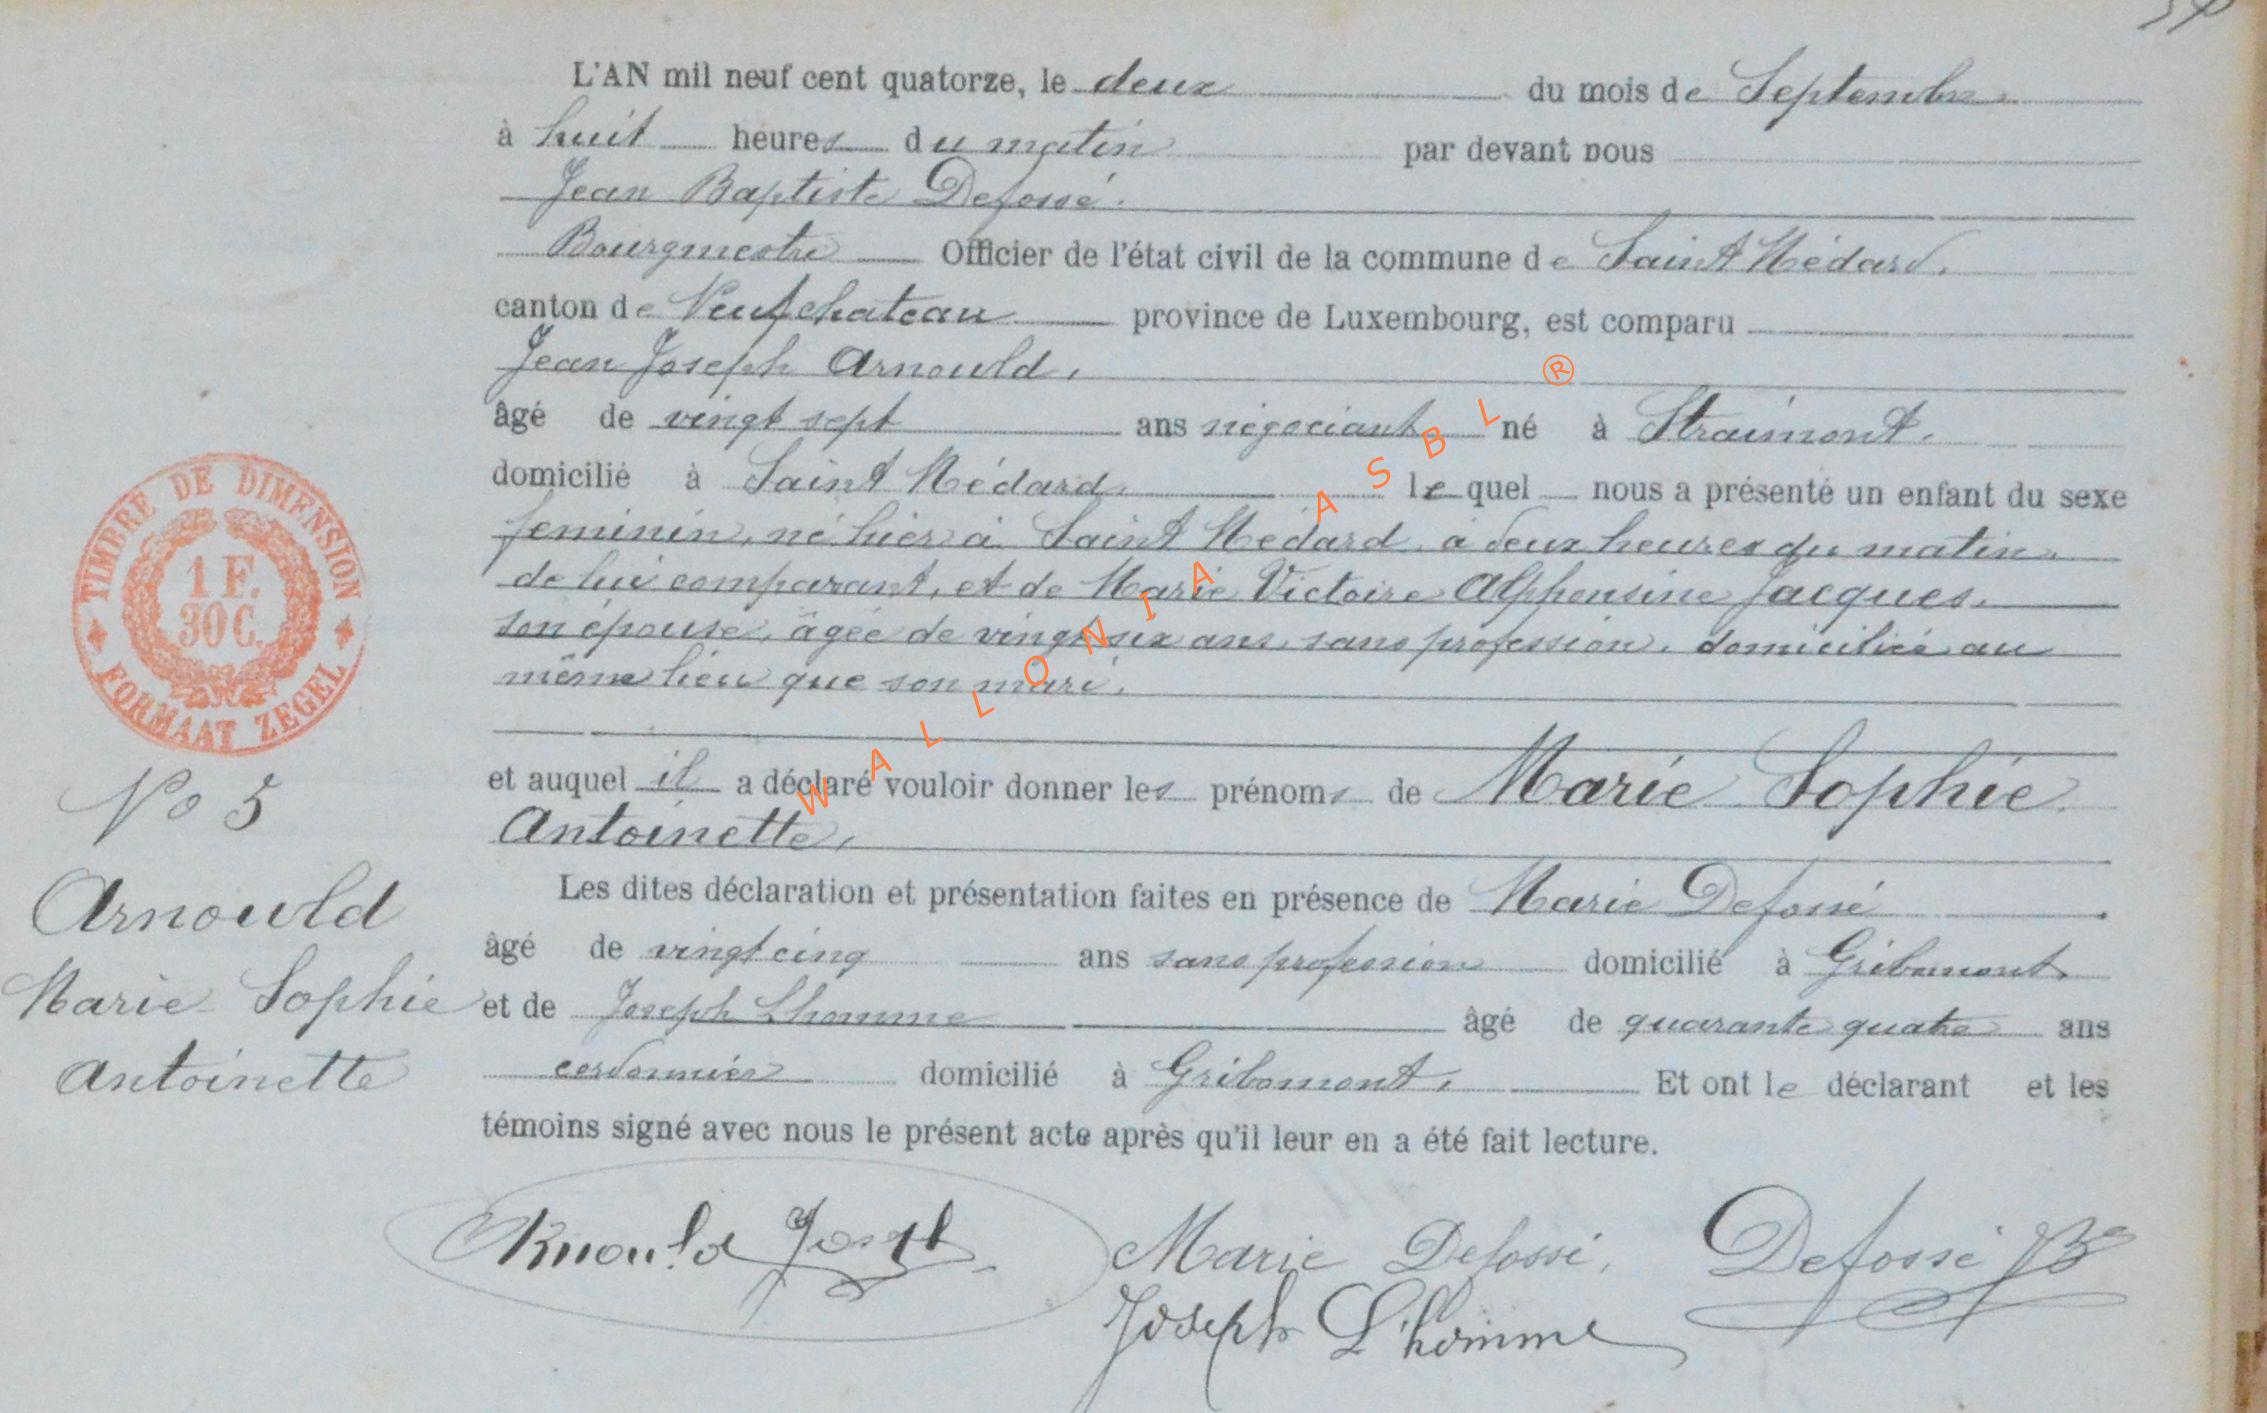 L'AN mil neuf cent quatorze, le deux du mois de Septembre
à huit heures du matin par devant nous
Jean Baptiste Defossé.
Bourgmestre Officier de l'état civil de la commune de Saint Médard.
canton de Neufchateau province de Luxembourg, est comparu
Jean Joseph Arnould,
âgé de vingt sept ans négociant né à Straimont.
domicilié à Saint Médard. lequel nous a présenté un enfant du sexe
feminin, né hier à Saint Médard, à deux heures du matin,
de lui comparant, et de Marie Victoire Alphonsine Jacques,
son épouse, âgée de vingt six ans, sans profession, domiciliée au
même lieu que son mari.
et auquel il a déclaré vouloir donner les prénoms de Marie Sophie
Antoinette,
Les dites déclaration et présentation faites en présence de Marie Defossé
âgé de vingt cinq ans sans profession domicilié à Gribomont
et de Joseph Lhomme âgé de quarante quatre ans
cordonnier domicilié à Gribomont, Et ont le déclarant et les
témoins signé avec nous le présent acte après qu'il leur en a été fait lecture.
Arnould Joseph Marie Defossé, Defossé JBte
Joseph L'homme
TIMBRE DE DIMENSION
1 F.
30 C.
FORMAAT ZEGEL
No 5
Arnould
Marie Sophie
Antoinette
WALLONIA ASBL ®